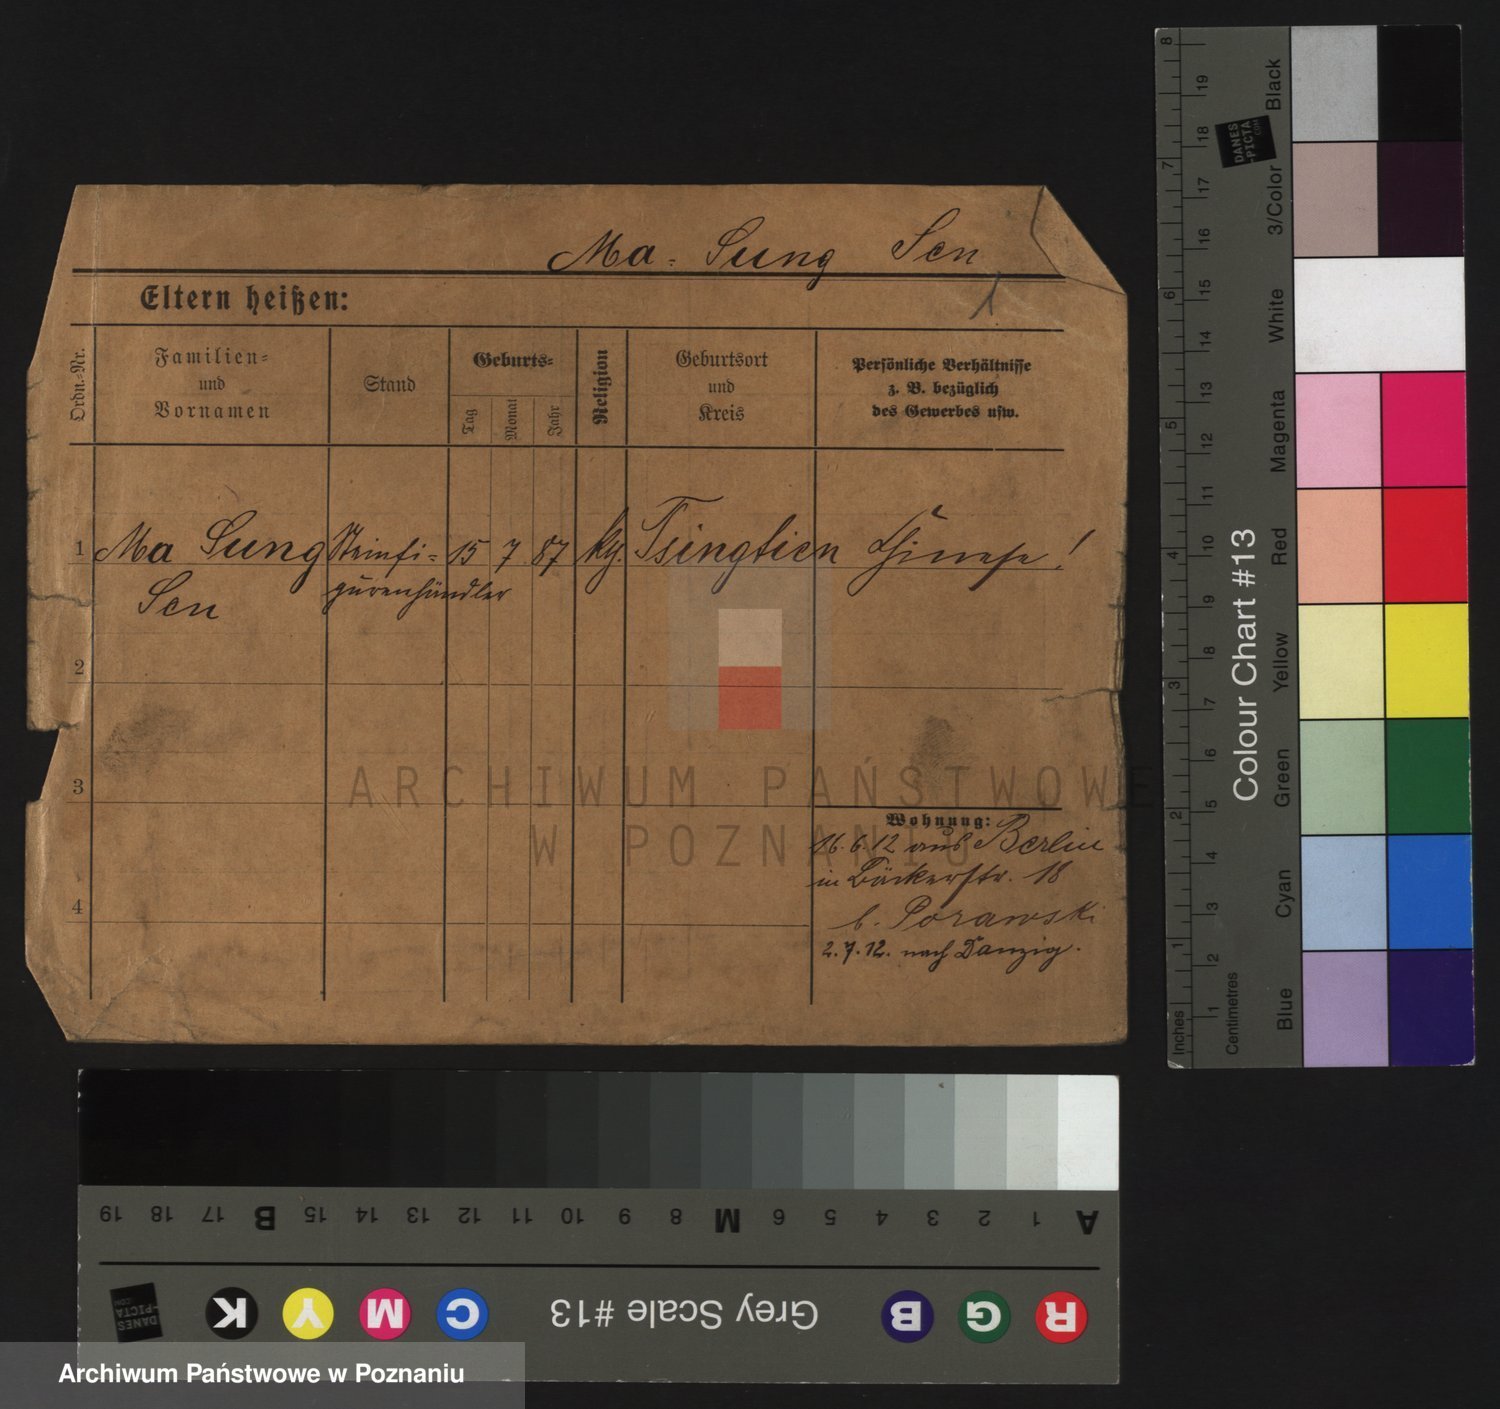 Ma-Sung Sen
Eltern heißen:
1
Ordn.-Nr.
Familien-
und
Vornamen
Stand
Geburts-
Tag
Monat
Jahr
Religion
Geburtsort
und
Kreis
Persönliche Verhältnisse
z. B. bezüglich
des Gewerbes usw.
1 Ma Sung Steinfi- 15 7 87 Tsingtien Chinese!
Sen gurenhändler
2
3
4
Wohnung:
16.6.12 aus Berlin
in Bäckerstr. 18
b. Porawski
2.7.12. nach Danzig.
ARCHIWUM PAŃSTWOWE
W POZNANIU
Inches 1 2 3 4 5 6 7 8
Centimetres 1 2 3 4 5 6 7 8 9 10 11 12 13 14 15 16 17 18 19
Colour Chart #13
Blue Cyan Green Yellow Red Magenta White 3/Color Black
DANES
-PICTA
.COM
A 1 2 3 4 5 6 M 8 9 10 11 12 13 14 15 B 17 18 19
R G B Grey Scale #13 C M Y K
DANES
-PICTA
.COM
Archiwum Państwowe w Poznaniu